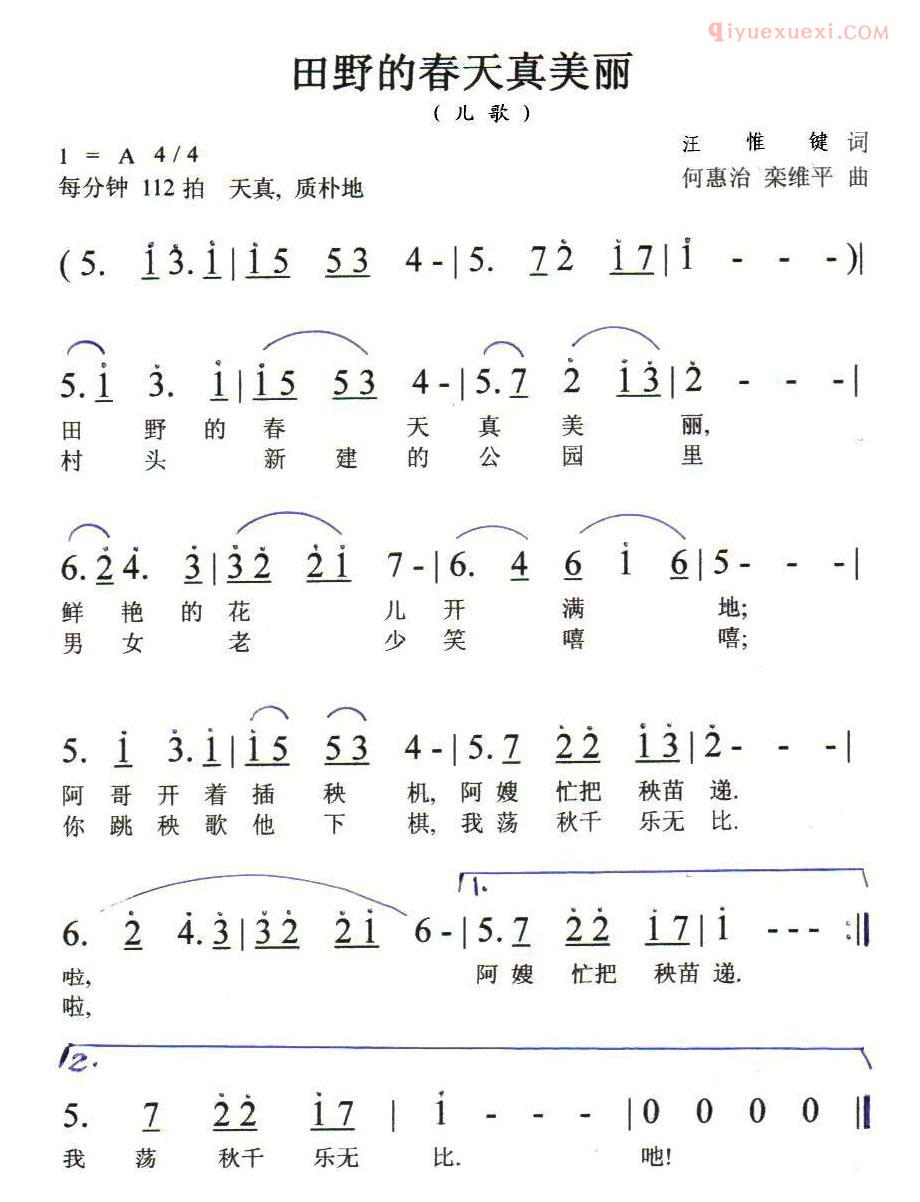 qiyuexuexi.COM
田野的春天真美丽
(儿歌)
1 = A 4/4
汪惟键 词
每分钟 112 拍 天真, 质朴地
何惠治 栾维平 曲
(5. i 3. i | i 5 5 3 4 - | 5. 7 2 i 7 | i - - - )|
5. i 3. i | i 5 5 3 4 - | 5. 7 2 i 3 | 2 - - - |
田 野 的 春 天 真 美 丽,
村 头 新 建 的 公 园 里
6. 2 4. 3 | 3 2 2 i 7 - | 6. 4 6 i 6 | 5 - - - |
鲜 艳 的 花 儿 开 满 地;
男 女 老 少 笑 嘻 嘻;
5. i 3. i | i 5 5 3 4 - | 5. 7 2 2 i 3 | 2 - - - |
阿 哥 开 着 插 秧 机, 阿 嫂 忙把 秧苗 递.
你 跳 秧 歌 他 下 棋, 我 荡 秋千 乐无 比.
1.
6. 2 4. 3 | 3 2 2 i 6 - | 5. 7 2 2 i 7 | i - - - :|
啦, 阿 嫂 忙把 秧苗 递.
啦,
2.
5. 7 2 2 i 7 | i - - - | 0 0 0 0 |
我 荡 秋千 乐无 比. 吔!